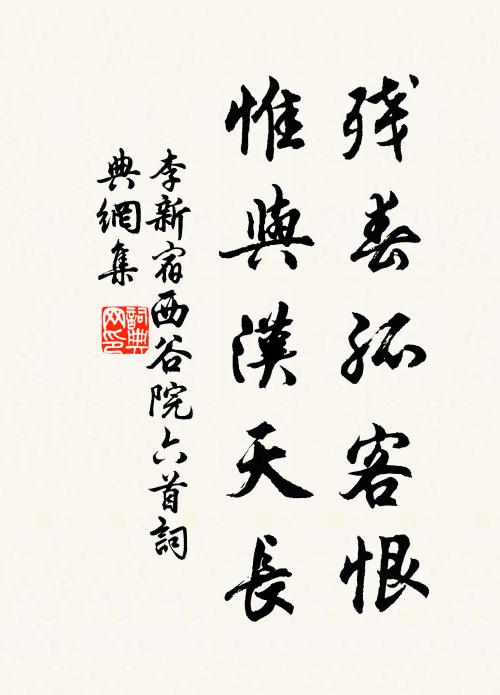 残春孤客恨
惟與漢天長
李新宿西谷院六首詞
典網集
詞典
网印